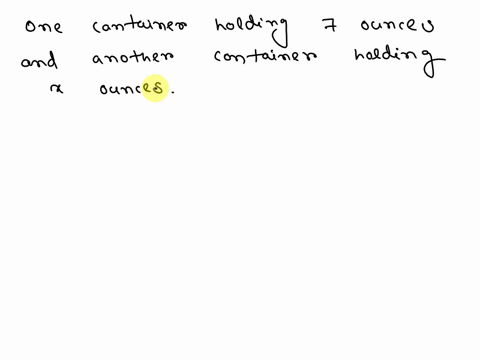 One container holding 7 ounces
and another container holding
x ounces.